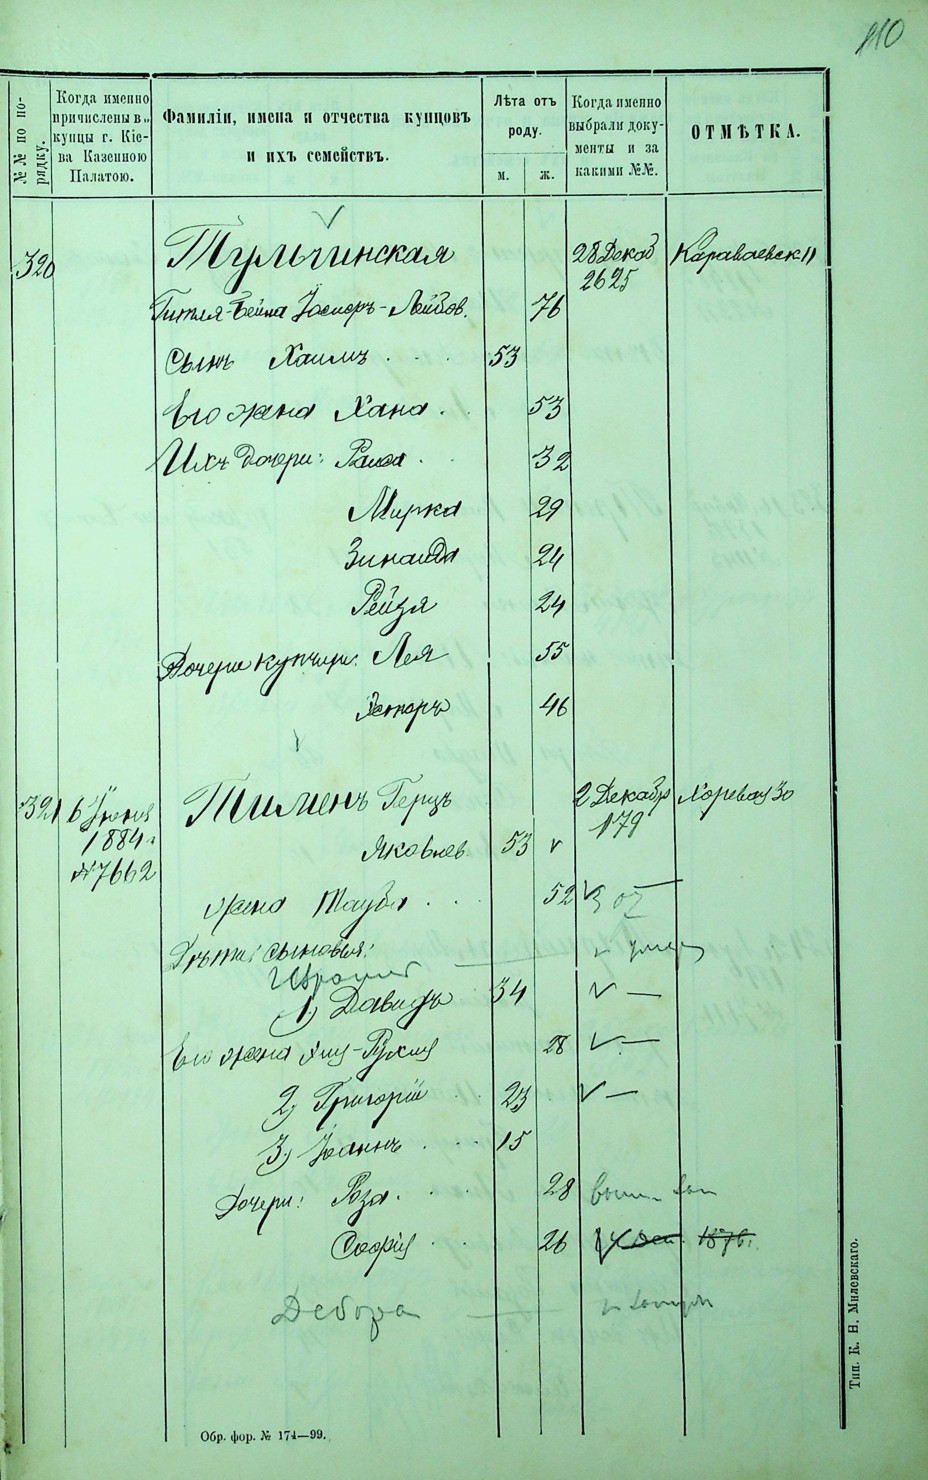 110
№№ по по-
рядку.
Когда именно
причислены въ
купцы г. Кіе-
ва Казенною
Палатою.
Фамиліи, имена и отчества купцовъ
и ихъ семействъ.
Лѣта отъ
роду.
м. ж.
Когда именно
выбрали доку-
менты и за
какими №№.
ОТМѢТКА.
320 Тульчинская 28 Декаб Караваевск 11
2625
Гитля-Бейла Іосиоръ-Лейбов. 76
Сынъ Хаимъ 53
Его жена Хана 53
Ихъ дочери: Раиса 32
Мирка 29
Зинаида 24
Рейзя 24
Дочери купчихи: Лея 55
Эстеръ 46
321 6 Іюня Тименъ Герцъ 2 Декабр Хоревая 30
1884 г. 179
Яковлев 53
№ 7662
жена Тауба 52
Дѣти: сыновья:
1) Давидъ 34
Его жена Хая-Рухля 28
2) Григорій 23
3) Іоаннъ 15
Дочери: Роза 28
Софія 26 1876 г.
Дебора
Тип. К. Н. Милевскаго.
Обр. фор. № 174—99.